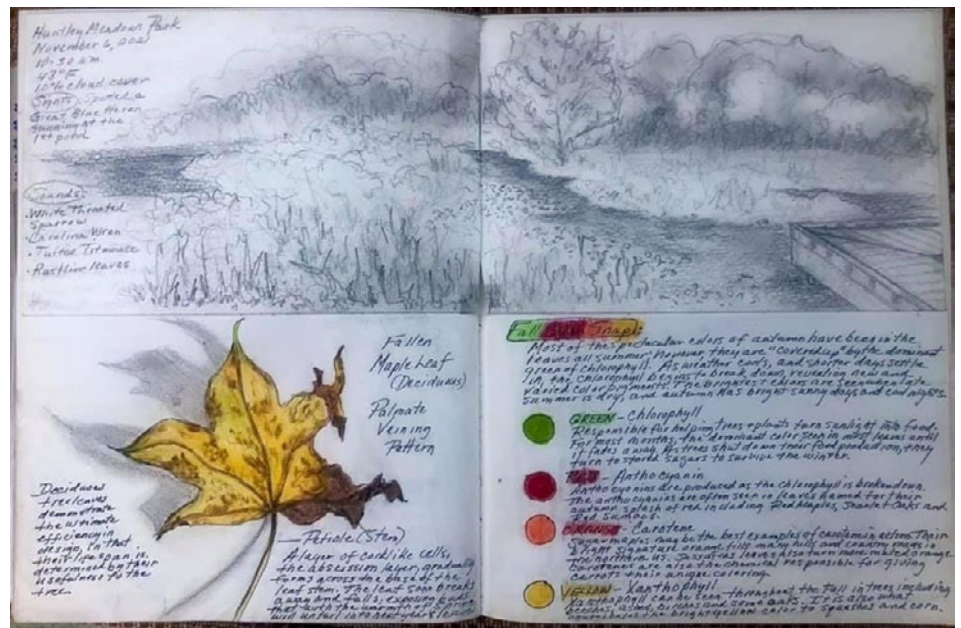 Huntley Meadows Park
November 6, 2021
10:30 a.m.
43°F
10% cloud cover
Spots: spotted a
Great Blue Heron
sunning at the
1st pond
Sounds
• White Throated
Sparrow
• Carolina Wren
• Tufted Titmouse
• Rustling leaves
Fallen
Maple Leaf
(Deciduous)
Palmate
Veining
Pattern
Deciduous
tree leaves
demonstrate
the ultimate
efficiency in
design, in that
their lifespan is
determined by their
usefulness to the
tree.
Petiole (Stem)
A layer of corklike cells,
the abscission layer, gradually
forms across the base of the
leaf stem. The leaf soon breaks
away and falls, exposing buds
that with the warmth of Spring
will unfurl into next years
Fall Color Snaps
Most of the spectacular colors of autumn have been in the
leaves all summer however they are "covered up" by the dominant
green of chlorophyll. As weather cools, and shorter days settle
in, the chlorophyll begins to break down, revealing new and
varying color pigments. The brightest colors are seen when late
summer is dry, and autumn has bright sunny days and cool nights.
GREEN - Chlorophyll
Responsible for helping trees & plants turn sunlight into food.
For most months, the dominant color seen in most leaves until
it fades away. As trees shut down their food production, they
turn to stored sugars to survive the winter.
RED - Anthocyanin
Anthocyanins are produced as the chlorophyll is broken down.
The anthocyanins are often seen in leaves famed for their
autumn splash of red including Red Maples, Scarlet Oaks and
Red Sumacs.
ORANGE - Carotene
Sugar maples may be the best examples of carotene in action. Their
bright signature orange fills many yards and hedges
the northern US. Sassafras leaves also turn more muted orange.
Carotenes are also the chemical responsible for giving
carrots their unique coloring.
YELLOW - Xanthophyll
Xanthophyll can be seen throughout the Fall in trees including
beeches, ashes, birches and some oaks. It is also what
the bright yellow color to squashes and corn.